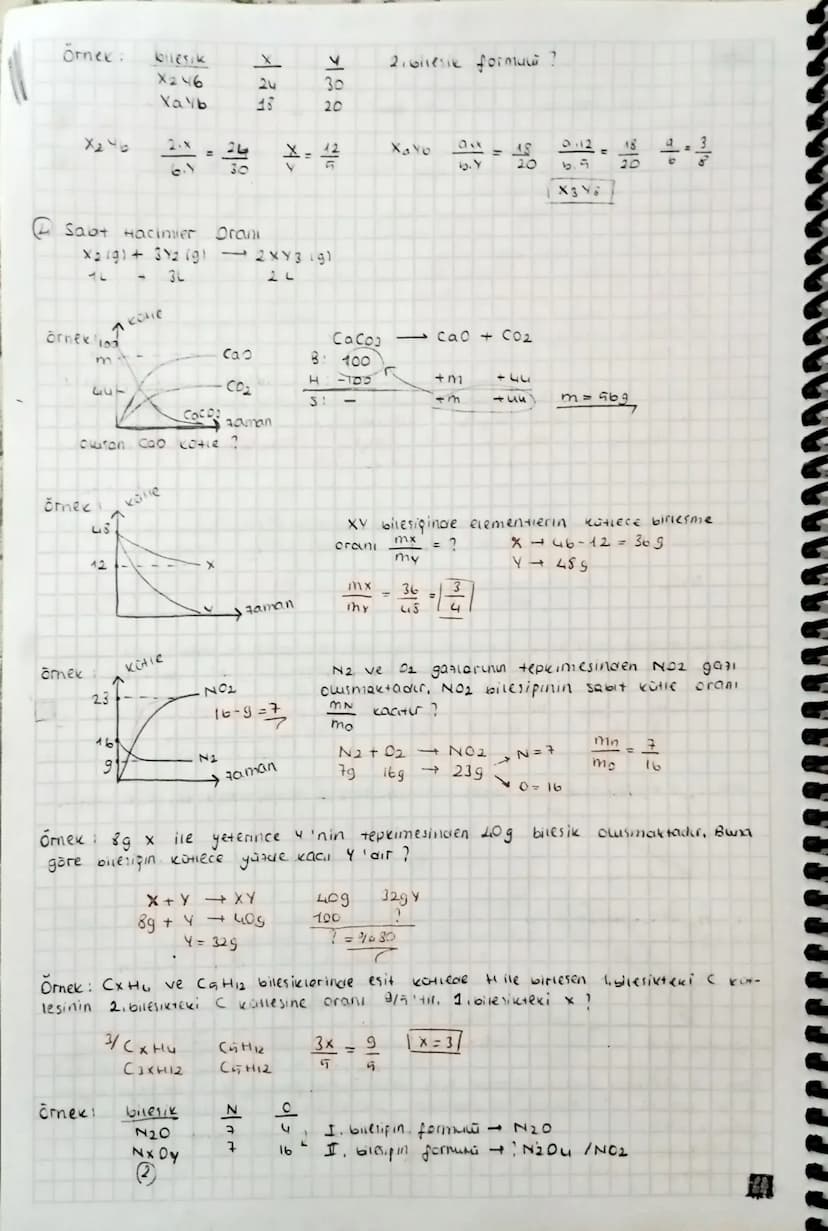 Örnek: bileşik X Y 2. bileşik formülü?
X2Y6 24 30
XaYb 18 20
X2Y6 2.X/6.Y = 24/30 X/Y = 12/5 XaYb a.x/b.Y = 18/20 a.12/b.5 = 18/20 a/b = 3/8
X3Y8
Sabit Hacimler Oranı
X2(g) + 3Y2(g) → 2XY3(g)
1L - 3L 2L
Örnek: kütle
100
m CaO
44 CO2
CaCO3 zaman
Oluşan CaO kütle?
CaCO3 → CaO + CO2
B: 100
H: -100 +m +44
S: - +m +44 m = 56g
Örnek: kütle
48
12 X
Y zaman
XY bileşiğinde elementlerin kütlece birleşme
oranı mx/my = ? X → 48-12 = 36g
Y → 48g
mx/my = 36/48 = 3/4
Örnek: kütle
23 NO2
16-9=7
16
9 N2
zaman
N2 ve O2 gazlarının tepkimesinden NO2 gazı
oluşmaktadır. NO2 bileşiğinin sabit kütle oranı
mN/mO kaçtır?
N2 + O2 → NO2 N=7 mn/mo = 7/16
7g 16g → 23g O=16
Örnek: 8g X ile yeterince Y'nin tepkimesinden 40g bileşik oluşmaktadır. Buna
göre bileşiğin kütlece yüzde kaçı Y'dir?
X + Y → XY 40g 32gY
8g + Y → 40g 100 ?
Y = 32g ? = %80
Örnek: CxH4 ve C5H12 bileşiklerinde eşit kütlede H ile birleşen 1. bileşikteki C küt-
lesinin 2. bileşikteki C kütlesine oranı 9/5'tir. 1. bileşikteki x?
3/ CxH4 C5H12 3x/5 = 9/5 x=3
C3xH12 C5H12
Örnek: bileşik N O
N2O 7 4 I. bileşiğin formülü → N2O
NxOy 7 16 II. bileşiğin formülü → ? N2O4 / NO2
(2)